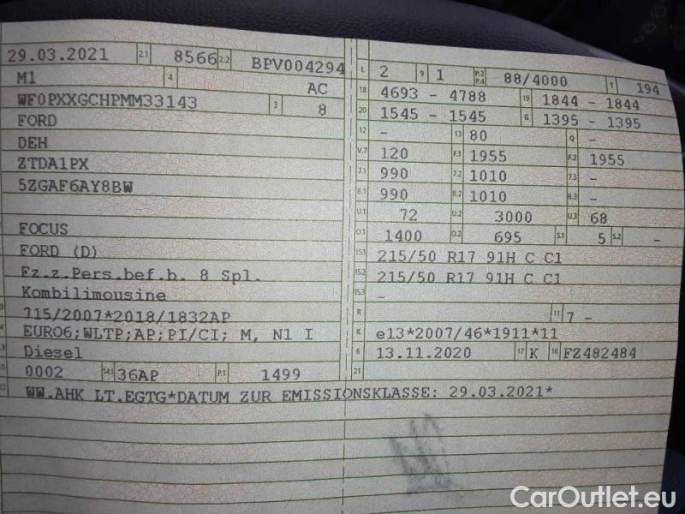 29.03.2021 2.1 8566 2.2 BPV004294
M1 4 AC
WF0PXXGCHPMM33143 3 8
FORD
DEH
ZTDA1PX
5ZGAF6AY8BW
FOCUS
FORD (D)
Fz.z.Pers.bef.b. 8 Spl.
Kombilimousine
715/2007*2018/1832AP
EURO6;WLTP;AP;PI/CI; M, N1 I
Diesel
0002 14.1 36AP P.1 1499
L 2 9 1 P.2 P.4 88/4000 T 194
18 4693 - 4788 19 1844 - 1844
20 1545 - 1545 G 1395 - 1395
12 - 13 80 Q -
V.7 120 F.1 1955 F.2 1955
7.1 990 7.2 1010 7.3 -
8.1 990 8.2 1010 8.3 -
U.1 72 U.2 3000 U.3 68
O.1 1400 O.2 695 S.1 5 S.2 -
15.1 215/50 R17 91H C C1
15.2 215/50 R17 91H C C1
15.3 -
R 11 7 -
K e13*2007/46*1911*11
6 13.11.2020 17 K 16 FZ482484
21
WW.AHK LT.EGTG*DATUM ZUR EMISSIONSKLASSE: 29.03.2021*
CarOutlet.eu